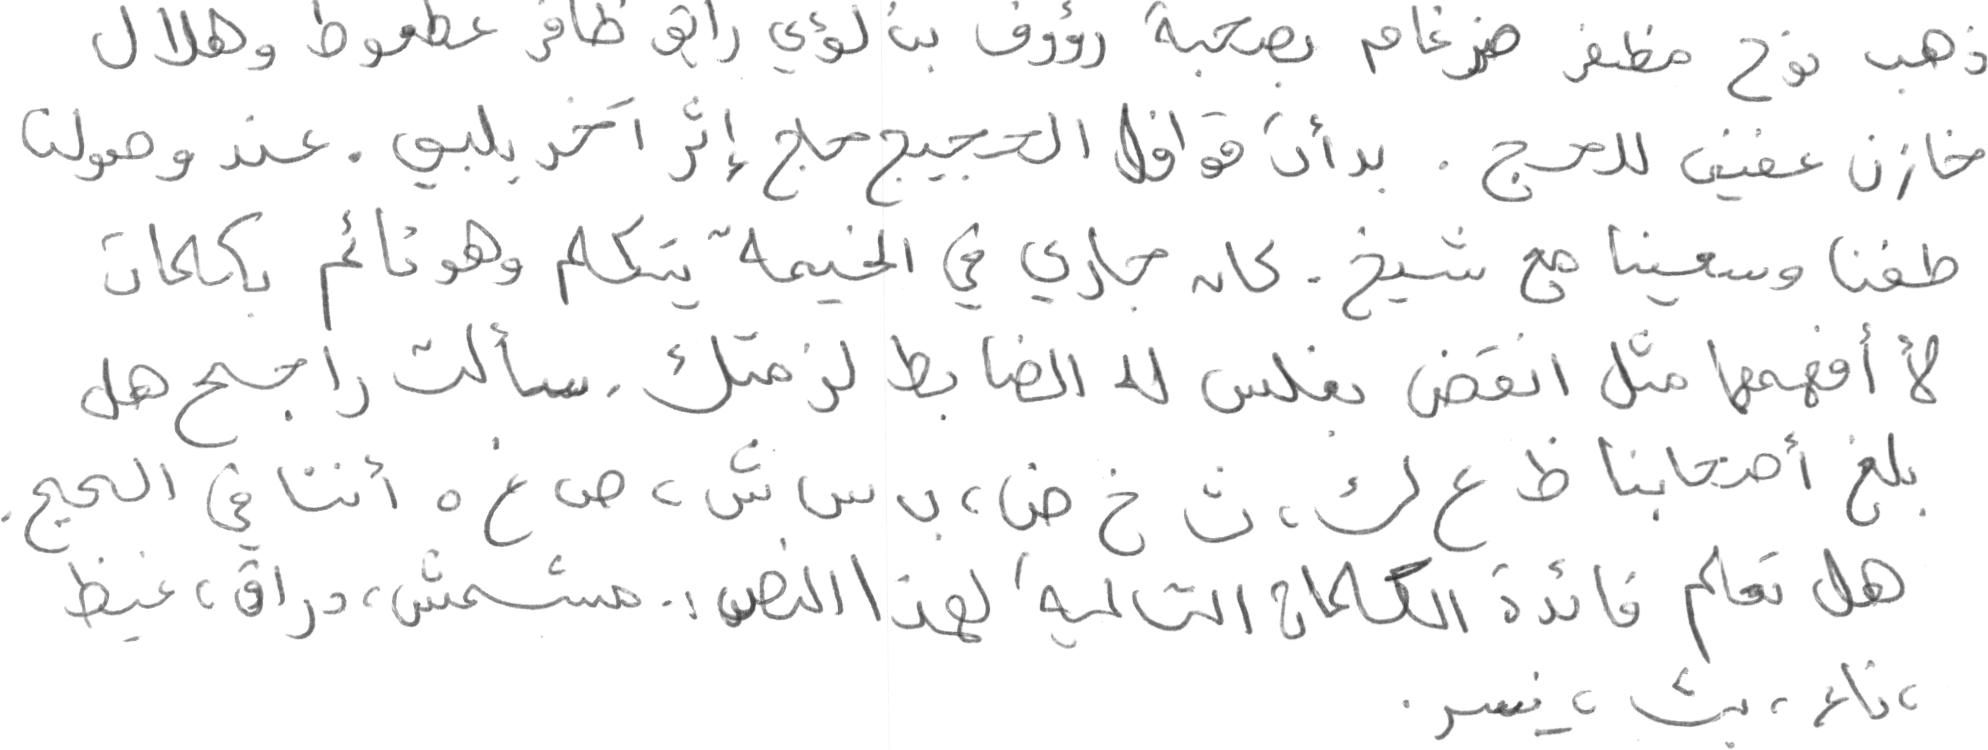 ذهب نوح مظفر ضرغام بصحبة رؤوف بن لؤي رائق ظافر عطعوط وهلال
خازن عفيف للحج . بدأت قوافل الحجيج حاج إثر آخر يلبي . عند وصولنا
طفنا وسعينا مع شيخ . كان جاري في الخيمة يتكلم وهو نائم بكلمات
لا أفهمها مثل انقض بغلس لاه الضابط لزمتك . سألت راجح هل
بلغ أصحابنا ظ ع ك ، ث خ ض ، ب س ش ، ص غ ه أننا في الحجيج .
هل تعلم فائدة الكلمات التالية لهذا النص : مشمش ، دراق ، غيظ
، ناء ، بث ، نسر .